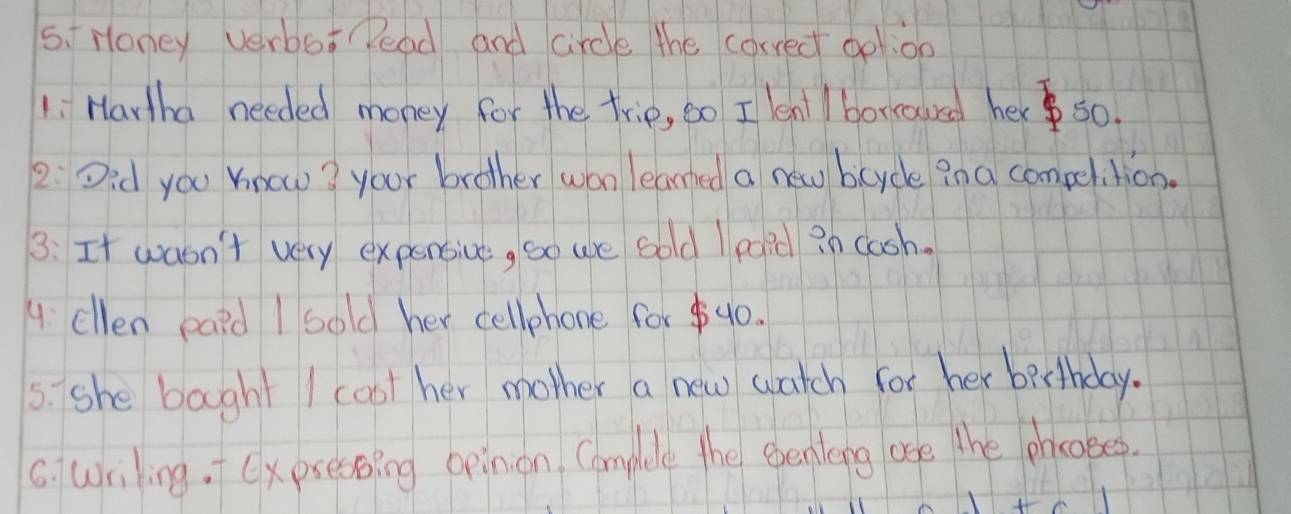 5.- Money verbs: Read and circle the correct option
1.- Martha needed money for the trip, so I lent / borrowed her $ 50.
2.- Did you know? your brother won / earned a new bicycle in a competition.
3.- It wasn't very expensive, so we sold / paid in cash.
4.- Ellen paid / sold her cellphone for $40.
5.- She bought / cost her mother a new watch for her birthday.
6.- Writing.- Expressing opinion. Complete the use the phrases.